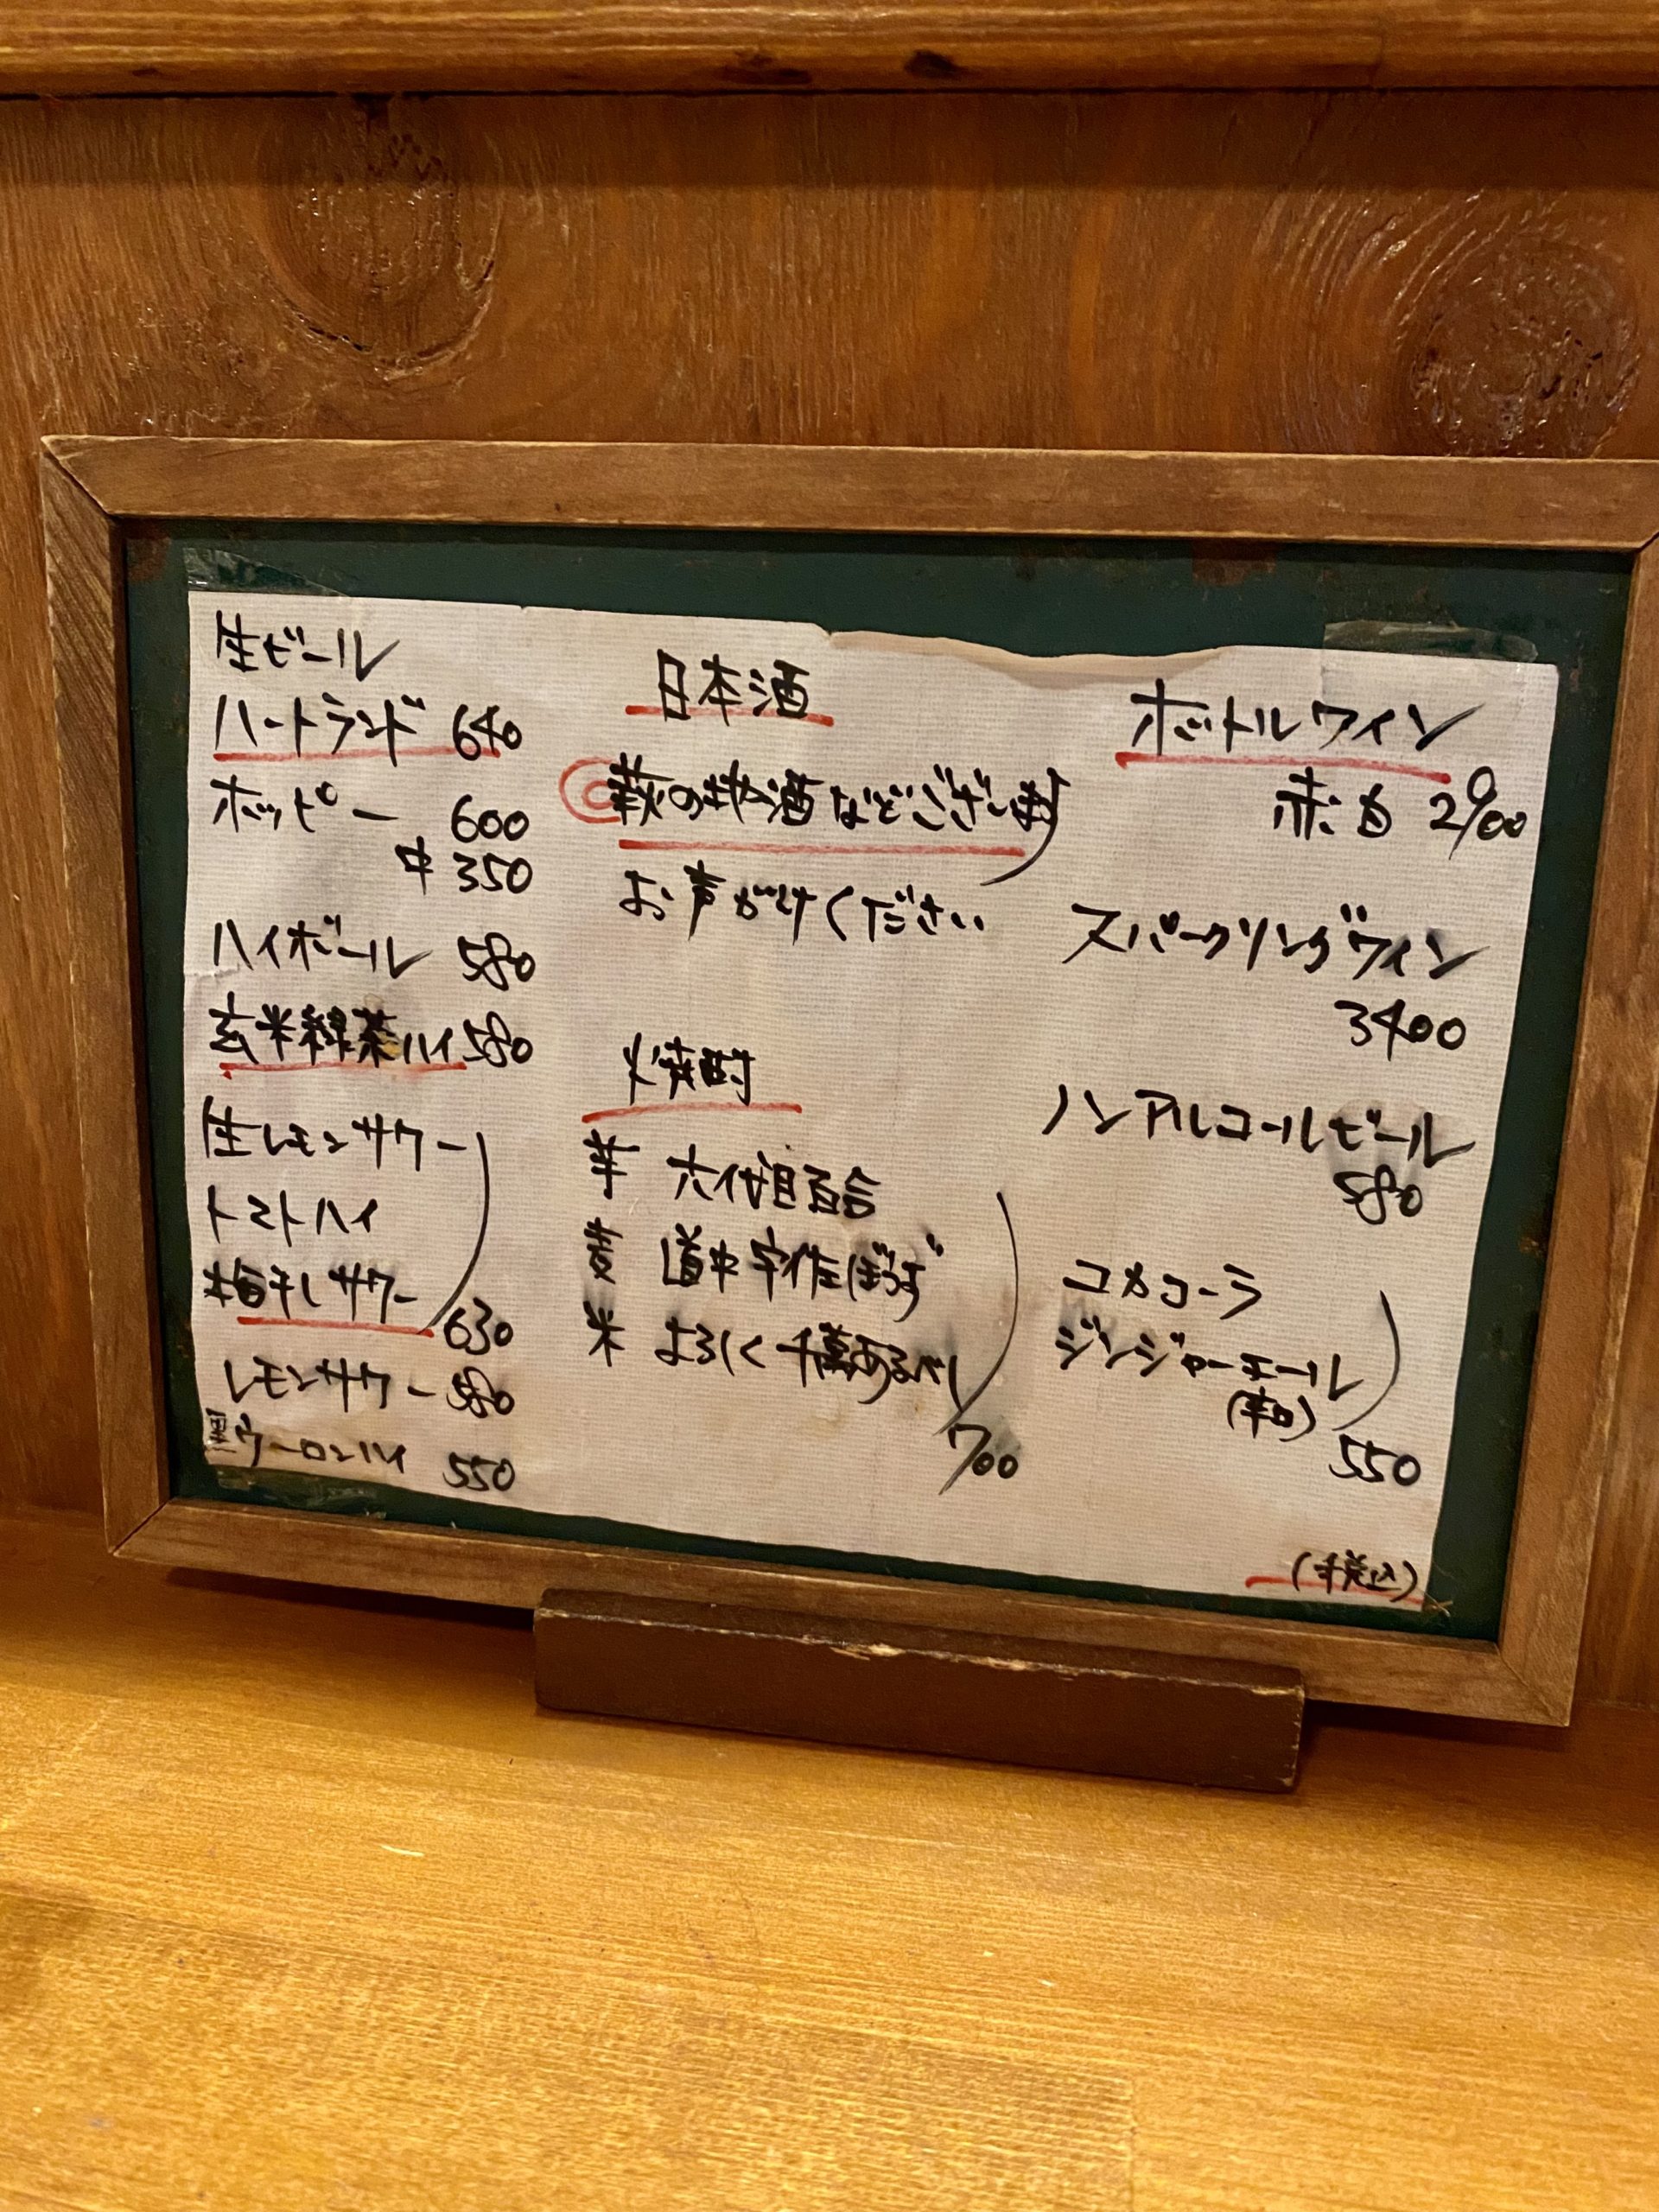 生ビール
ハートランド 640
ホッピー 600
中 350
ハイボール 580
玄米緑茶ハイ 580
生レモンサワー
トマトハイ
梅干しサワー 630
レモンサワー 580
黒ウーロンハイ 550
日本酒
萩の地酒などございます
お声がけください
焼酎
芋 六代目百合
麦 道中宇佐ぼうず
米 よろしく千萬あるべし
700
ボトルワイン
赤白 2900
スパークリングワイン
3400
ノンアルコールビール
580
コカコーラ
ジンジャーエール
(辛口)
550
(税込)